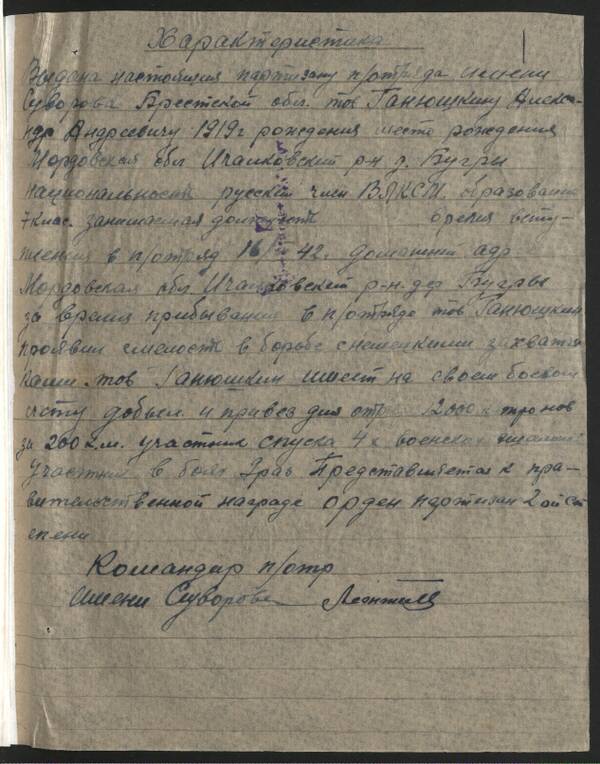 Характеристика
Выдана настоящия партизану п/отряда имени
Суворова Брестской обл. тов Ганюшкину Алекса-
ндр Андреевичу 1919г рождения место рождения
Мордовская обл Ичалковский р-н д. Бугры
национальность русский член ВЛКСМ образование
7 клас. занимаемая должность время всту-
пления в п/отряд 16 42. домашний адр
Мордовская обл Ичалковский р-н. дер Бугры
за время прибывания в п/отряде тов Ганюшкин
проявил смелость в борьбе с немецкими захватчи
ками тов Ганюшкин имеет на своем боевом
счту добыл и привез для отря 12000 к тронов
за 200 к.м. участник спуска 4х военских эшалон
Участник в боях 3 раз Представляется к пра-
вительственной награде орден партизан 2ой ст
епени
Командир п/отр
имени Суворова